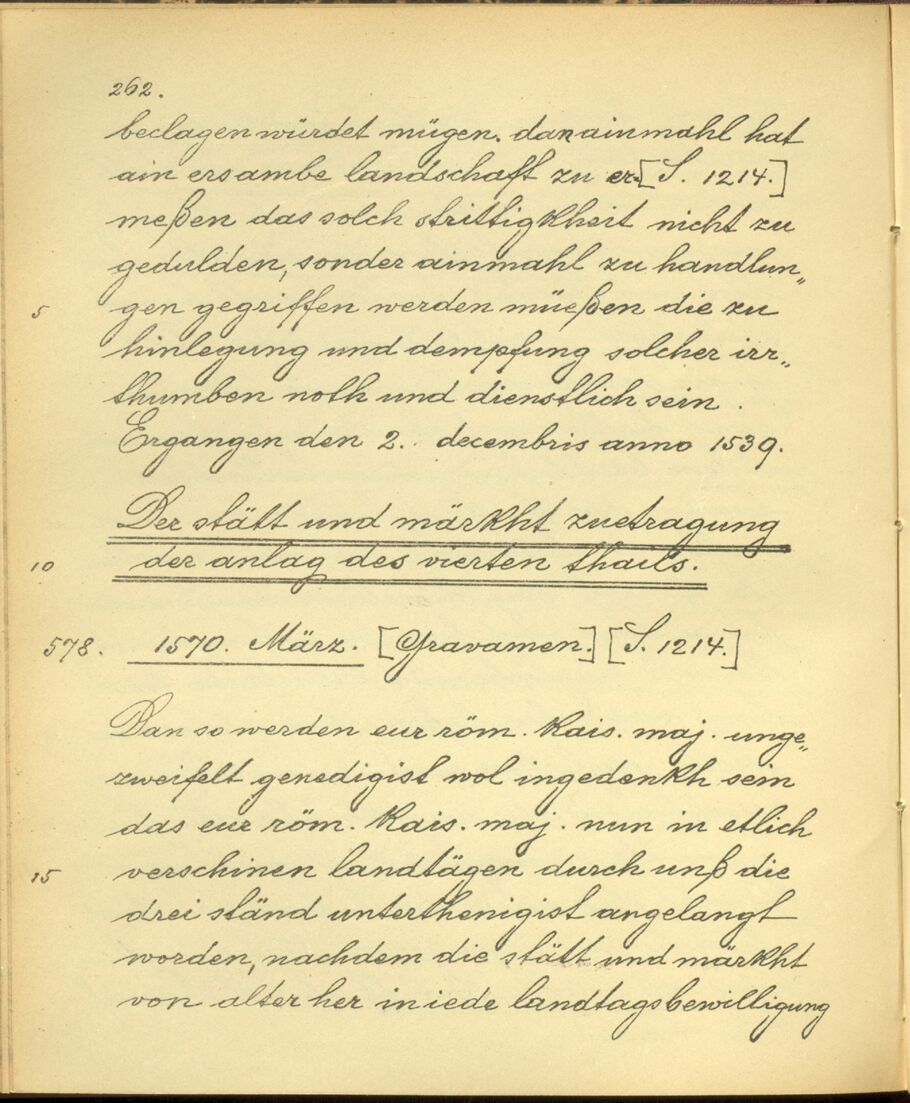 262.
beclagen würdet mügen. dan ainmahl hat
ain ersambe landschaft zu er-[S. 1214.]
meßen das solch strittigkheit nicht zu
gedulden, sonder ainmahl zu handlun„
5 gen gegriffen werden müeßen die zu
hinlegung und dempfung solcher irr„
thumben noth und dienstlich sein.
Ergangen den 2. decembris anno 1539.
Der stätt und märkht zuetragung
10 der anlag des vierten thails.
578. 1570. März. [Gravamen.] [S. 1214.]
Dan so werden eur röm. kais. maj. unge„
zweifelt genedigist wol ingedenkh sein
das eur röm. kais. maj. nun in etlich
15 verschinen landtägen durch unß die
drei ständ unterthenigist angelangt
worden, nachdem die stätt und märkht
von alter her in iede landtagsbewilligung